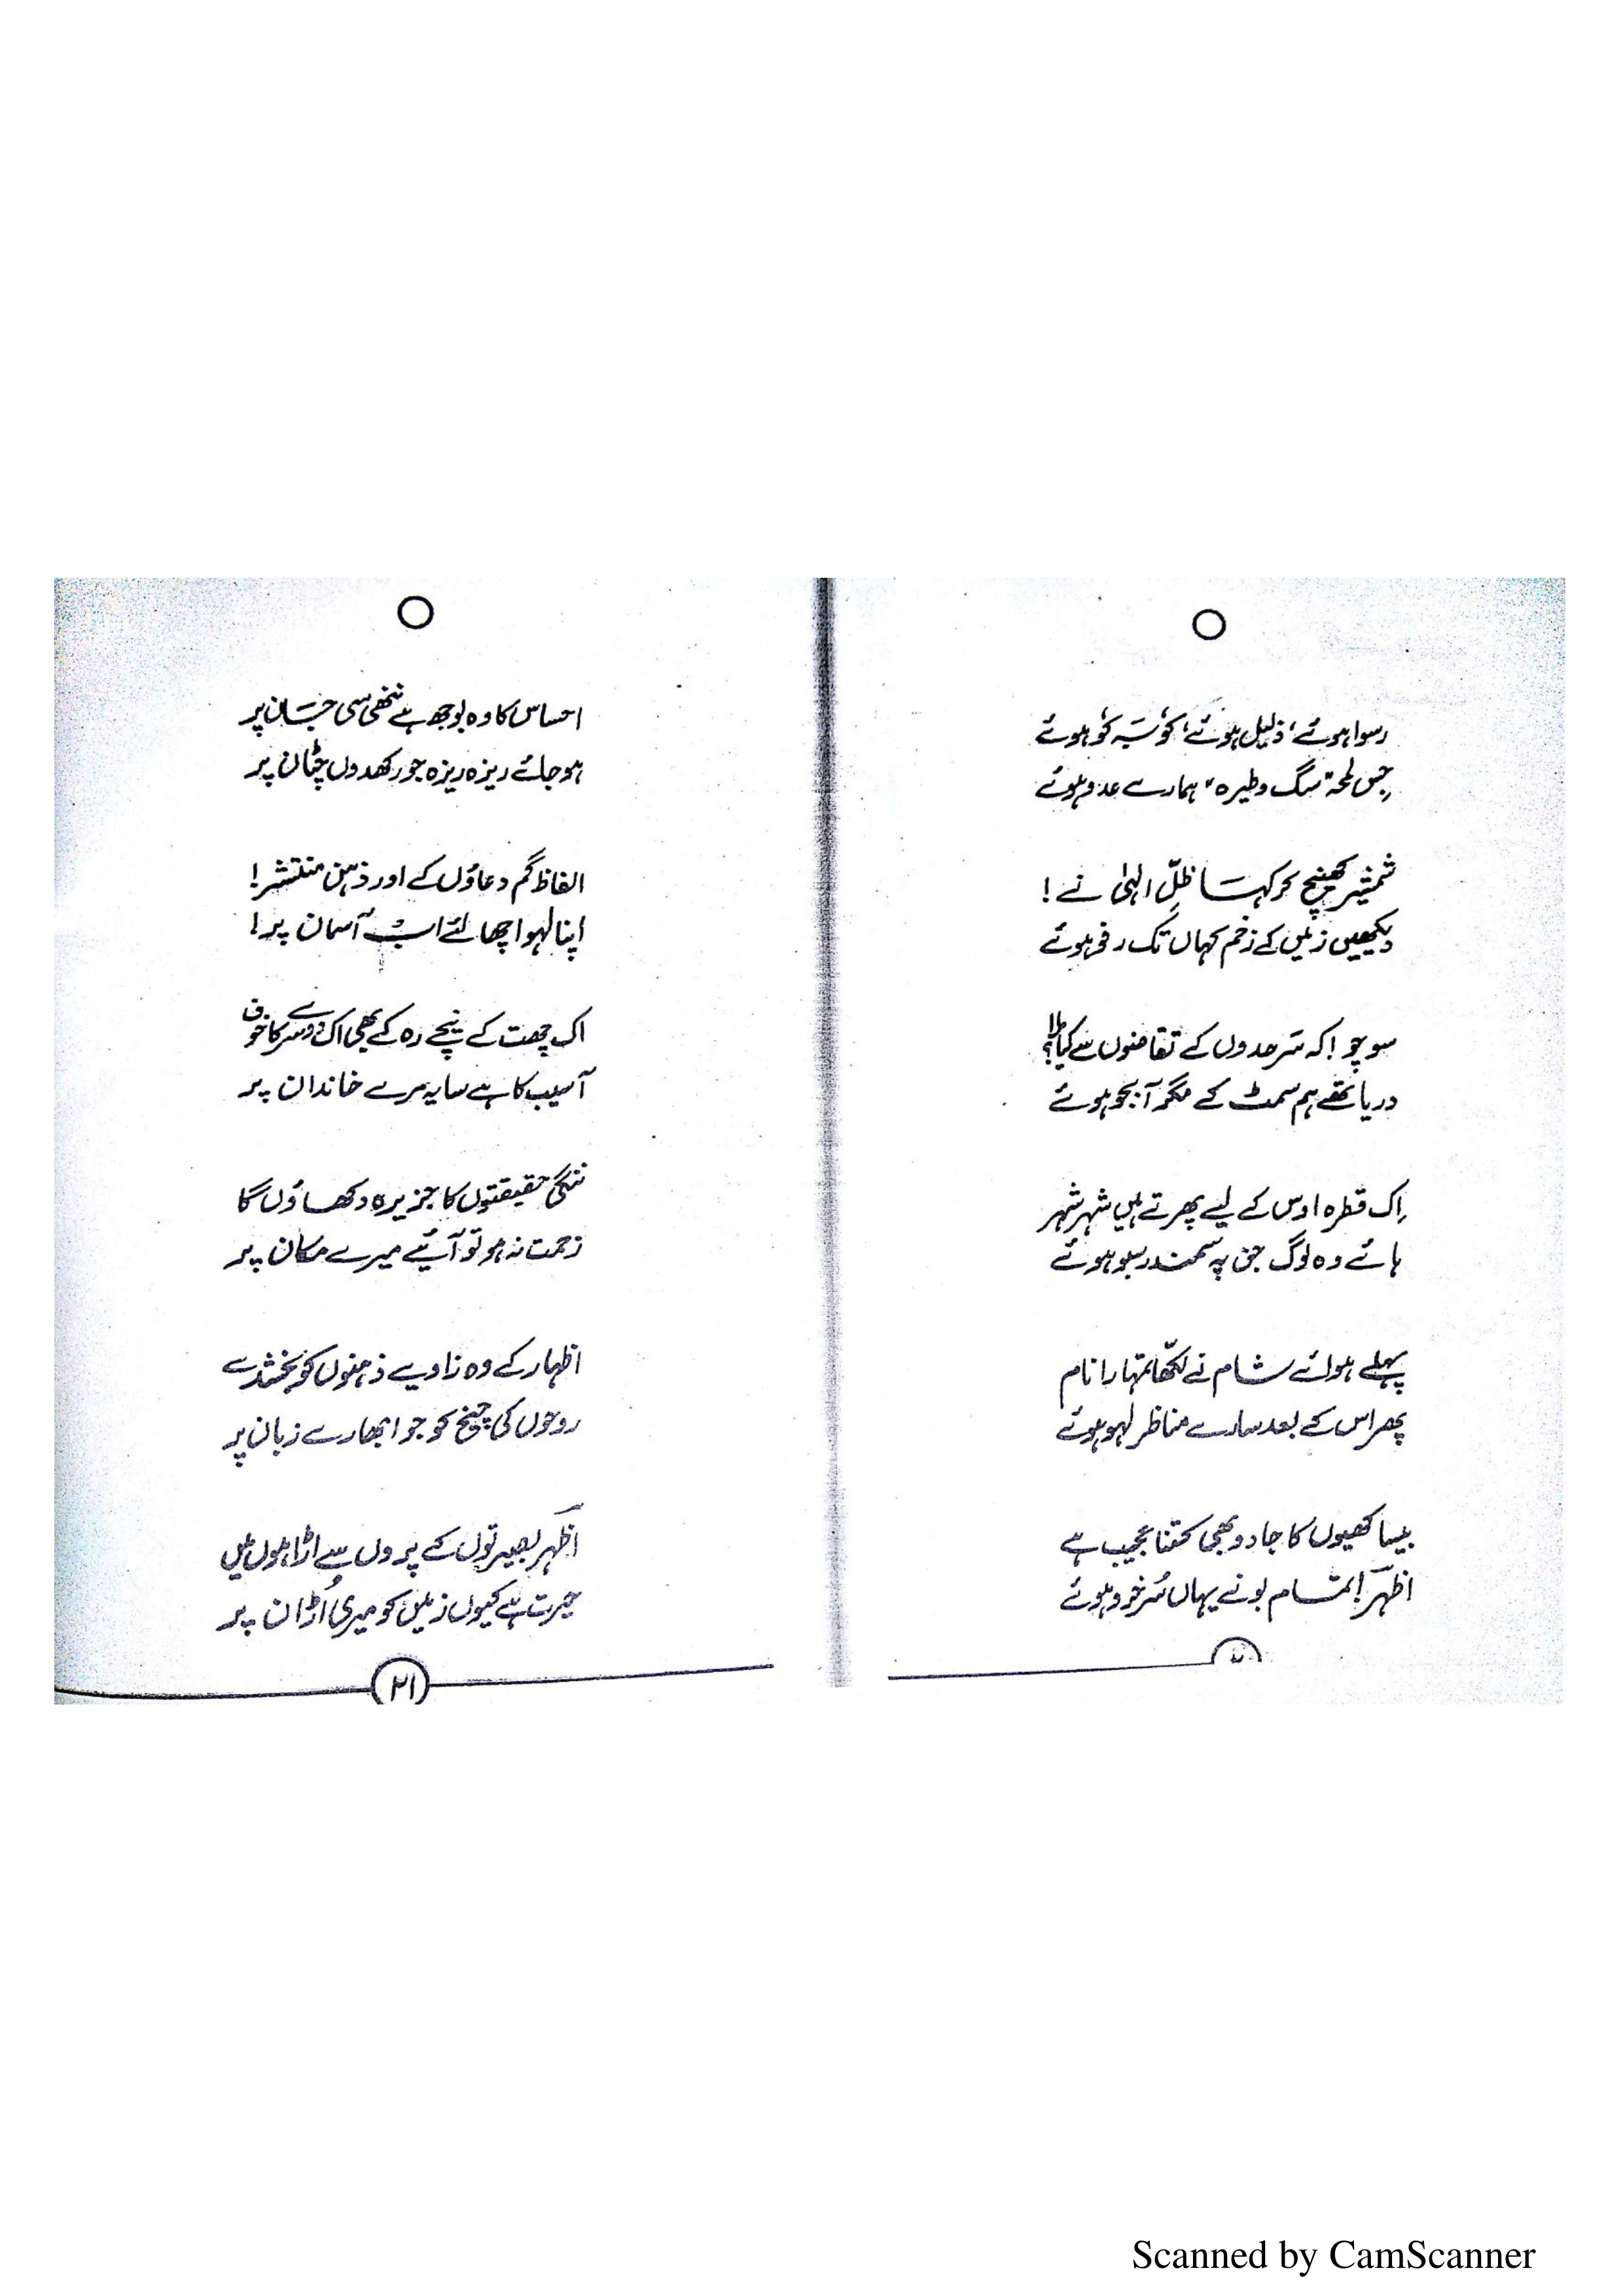 رسوا ہوئے، ذلیل ہوئے، کُو بَہ کُو ہوئے
جس لمحہ "سگ وطیرہ" ہمارے عدو ہوئے
شمشیر کھینچ کر کہا ظلِّ الہٰی نے !
دیکھیں زمیں کے زخم کہاں تک رفو ہوئے
سوچو ! کہ سَرحدوں کے تقاضوں سے کیا ملا؟
دریا تھے ہم سمٹ کے مگر آبجو ہوئے
اِک قطرہ اوس کے لیے پھرتے ہیں شہر شہر
ہائے وہ لوگ جن پہ سمندر سبو ہوئے
پہلے ہوائے شام نے لکھّا تمہارا نام
پھر اس کے بعد سارے مناظر لہو ہوئے
بیساکھیوں کا جادو بھی کتنا عجیب ہے
اظہرؔ! تمام بونے یہاں سُرخرو ہوئے
احساس کا وہ بوجھ ہے ننھی سی جان پر
ہو جائے ریزہ ریزہ جو رکھدوں چٹان پر
الفاظ گم دعاؤں کے اور ذہن منتشر!
اپنا لہو اچھالئے اب آسمان پر!
اک چھت کے نیچے رہ کے بھی اک دوسرے کا خوف
آسیب کا ہے سایہ مرے خاندان پر
ننگی حقیقتوں کا جزیرہ دکھاؤں گا
زحمت نہ ہو تو آئیے میرے مکان پر
اظہار کے وہ زاویے ذہنوں کو بخشدے
روحوں کی چیخ کو جو ابھارے زبان پر
اظہرؔ بصیرتوں کے پروں سے اڑا ہوں میں
حیرت ہے کیوں زمین کو میری اُڑان پر
۲۱
Scanned by CamScanner